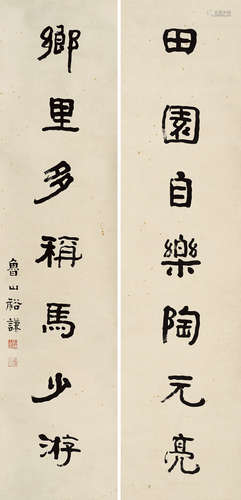 田園自樂陶元亮
鄉里多稱馬少游
魯山裕謙